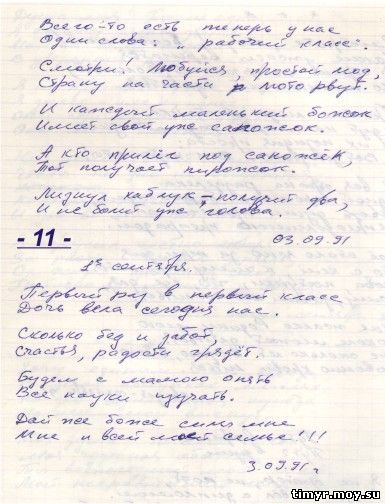 Всего-то есть теперь у нас
Одни слова: „рабочий класс".
Смотри! Любуйся, простой люд,
Страну на части люто рвут.
И каждый маленький божок
Имеет свой уже сапожок.
А кто прилёг под сапожёк,
Тот получает пирожок.
Лизнул каблук – получит два,
И не болит уже голова.
- 11 -
03.09.91
1е сентября.
Первый раз в первый класс
Дочь вела сегодня нас.
Сколько бед и забот,
Счастья, радости грядёт.
Будем с мамою опять
Все науки изучать.
Дай же боже силы мне
Мне и всей моей семье!!!
3.09.91 г
timyr.moy.su